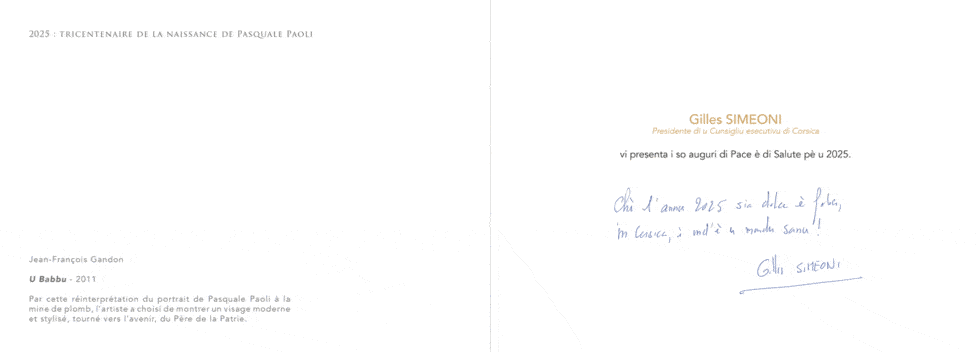 2025 : TRICENTENAIRE DE LA NAISSANCE DE PASQUALE PAOLI
Jean-François Gandon
U Babbu - 2011
Par cette réinterprétation du portrait de Pasquale Paoli à la
mine de plomb, l'artiste a choisi de montrer un visage moderne
et stylisé, tourné vers l'avenir, du Père de la Patrie.
Gilles SIMEONI
Presidente di u Cunsigliu esecutivu di Corsica
vi presenta i so auguri di Pace è di Salute pè u 2025.
Chì l'annu 2025 sia dolce è felice,
in Corsica, è ind'è u mondu sanu !
Gilles SIMEONI